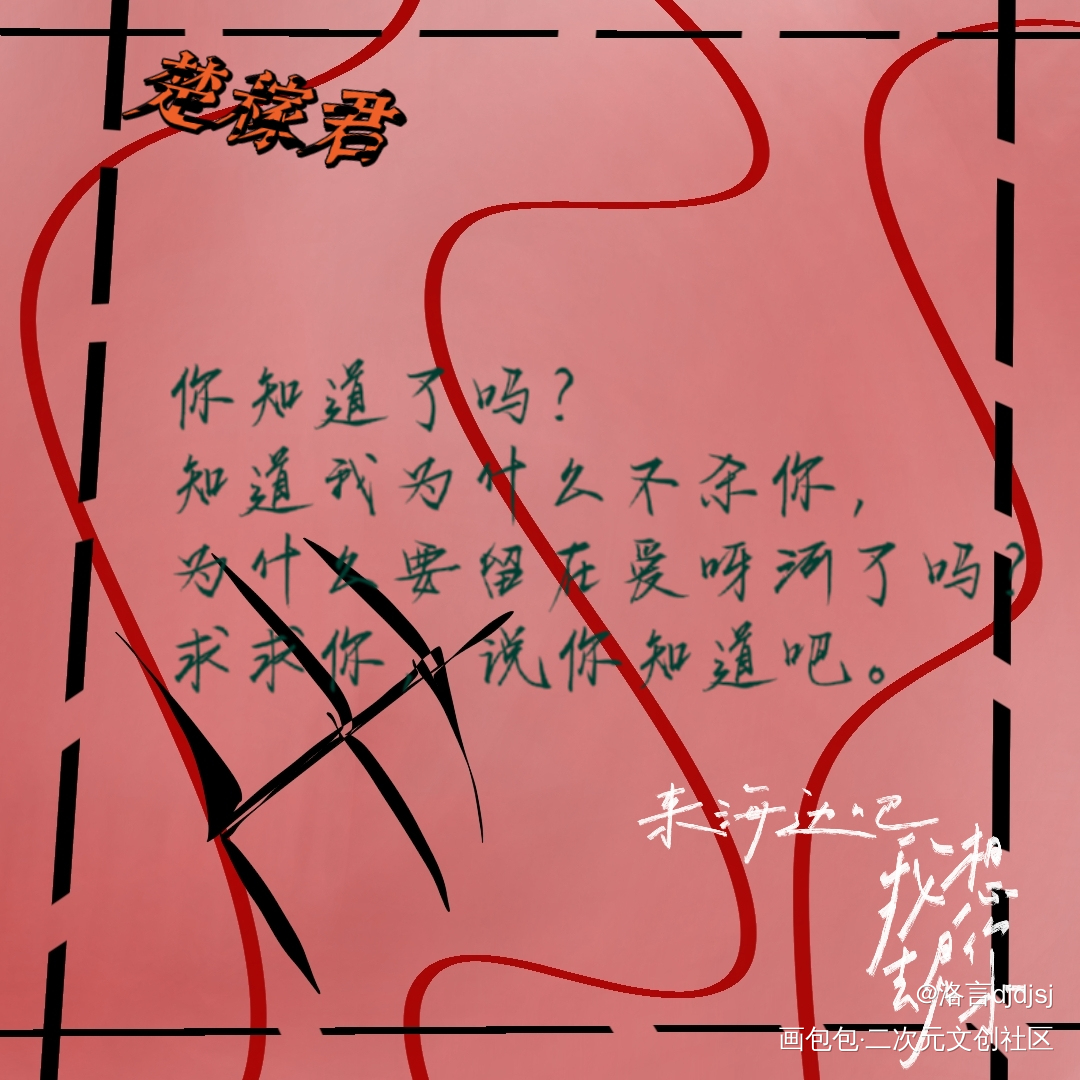 楚稼君
你知道了吗？
知道我为什么不杀你，
为什么要留在爱呀河了吗？
求求你，说你知道吧。
来海边吧
我想
你
去
@洛言djdjsj
画包包·二次元文创社区